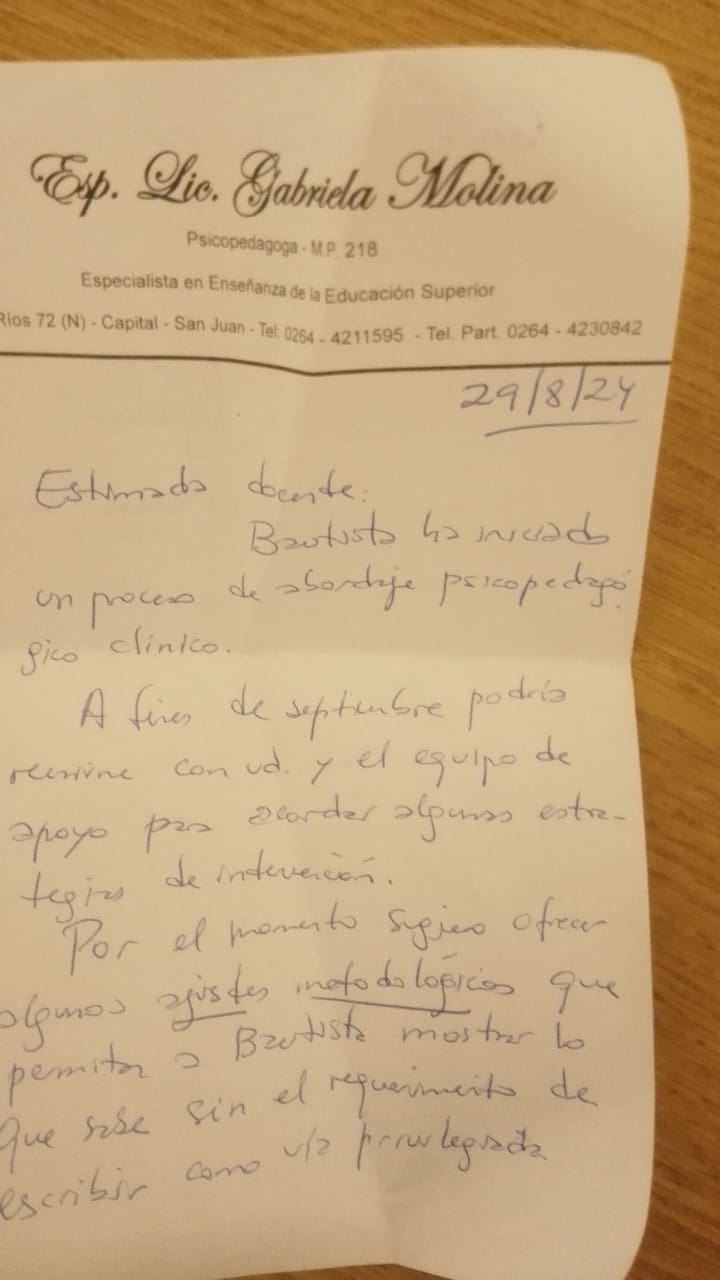 Esp. Lic. Gabriela Molina
Psicopedagoga - M.P. 218
Especialista en Enseñanza de la Educación Superior
Ríos 72 (N) - Capital - San Juan - Tel: 0264 - 4211595 - Tel. Part. 0264 - 4230842
29/8/24
Estimada docente:
Bautista ha iniciado
un proceso de abordaje psicopedagó
gico clínico.
A fines de septiembre podría
reunirme con ud. y el equipo de
apoyo para acordar algunas estra-
tegias de intervención.
Por el momento sugiero ofrecer
algunos ajustes metodológicos que
permitan a Bautista mostrar lo
que sabe sin el requerimiento de
escribir como vía privilegiada